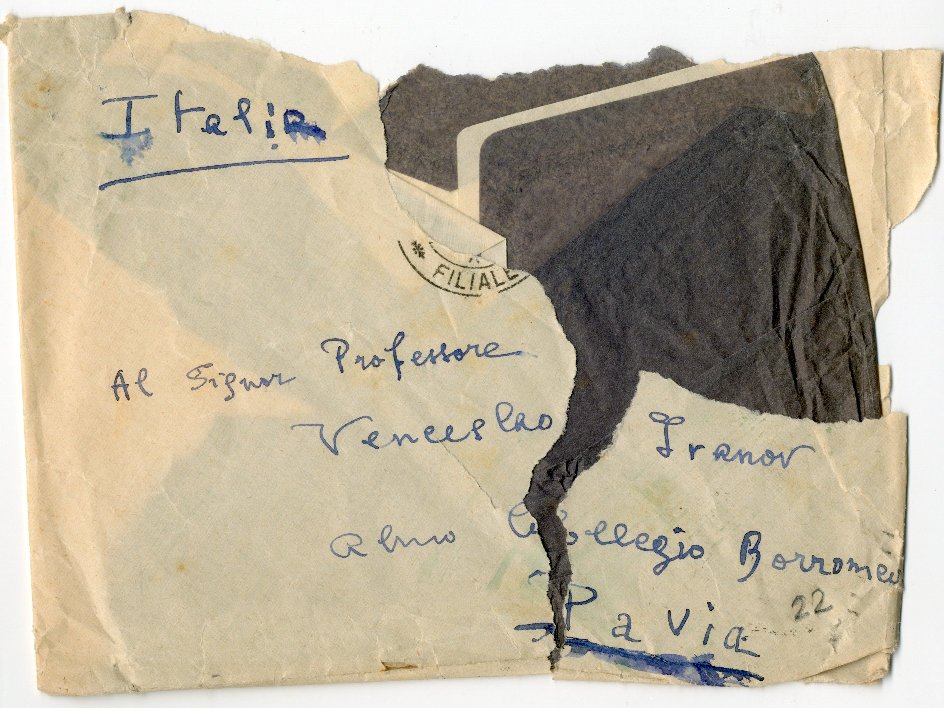 Italia
* FILIALE
Al Signor Professore
Venceslao Ivanov
Almo Collegio Borromeo
Pavia
22